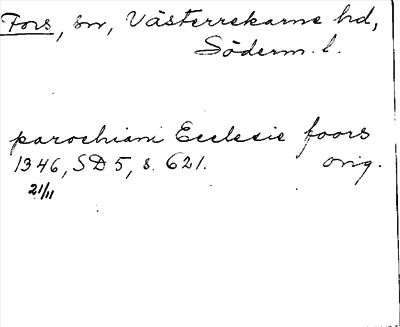 Fors, sn, Västerrekarne hd,
Söderm. l.
parochiani Ecclesie foors
1346, SD 5, s. 621. orig.
21/11